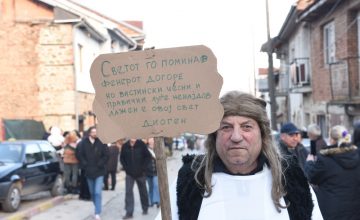 СВЕТОТ ГО ПОМИНАВ
ФЕНЕРОТ ДОГОРЕ
НО ВИСТИНСКИ ЧЕСНИ И
ПРАВИЧНИ ЛУЃЕ НЕНАЈДОВ
ЛАЖЕН Е ОВОЈ СВЕТ
ДИОГЕН